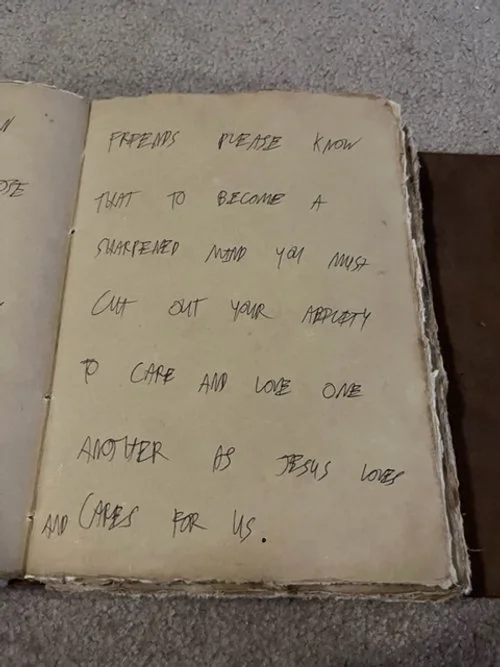 N
OSE
FRIENDS PLEASE KNOW
THAT TO BECOME A
SHARPENED MIND YOU MUST
CUT OUT YOUR ABILITY
TO CARE AND LOVE ONE
ANOTHER AS JESUS LOVES
AND CARES FOR US.